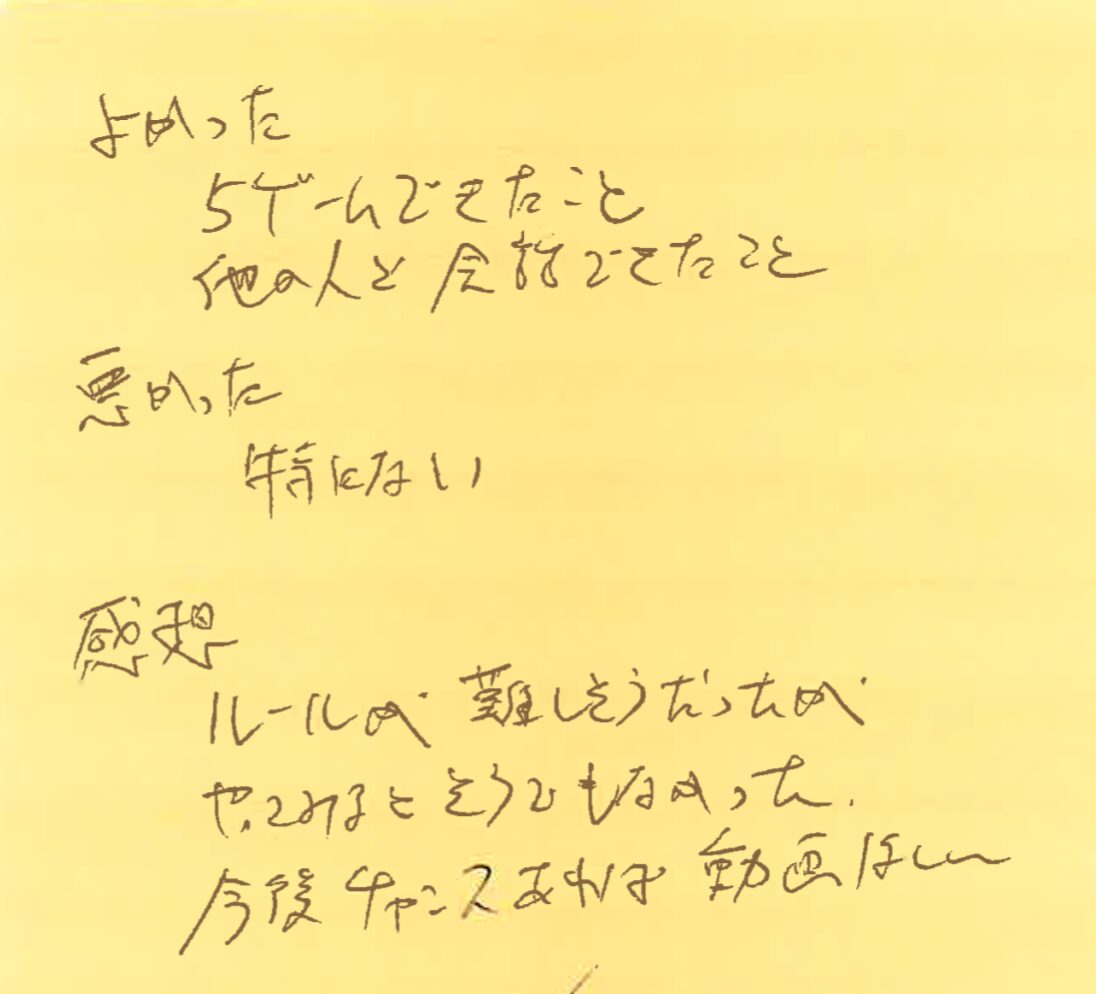 よかった
5ゲームできたこと
他の人と会話できたこと
悪かった
特にない
感想
ルールが難しそうだったが
やってみるとそうでもなかった.
今後チャンスあれば動画ほしい